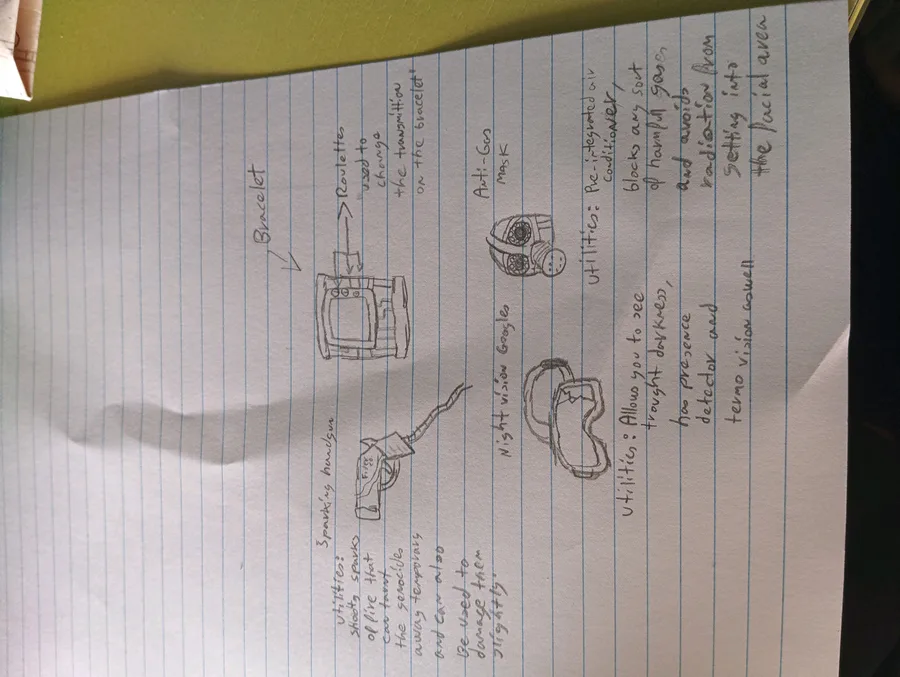 Bracelet
Roulettes
used to
change
the transmition
on the bracelet
Sparking handgun
Utilities:
shoots sparks
of fire that
can turnt
the genocides
away temporary
and can also
be used to
damage them
slightly.
Anti-Gas
Mask
Utilities: Pre-integrated air
conditioner,
blocks any sort
of harmful gases,
and avoids
radiation from
getting into
the facial area
Night vision Googles
Utilities: Allows you to see
trought darkness,
has presence
detector and
termo vision aswell